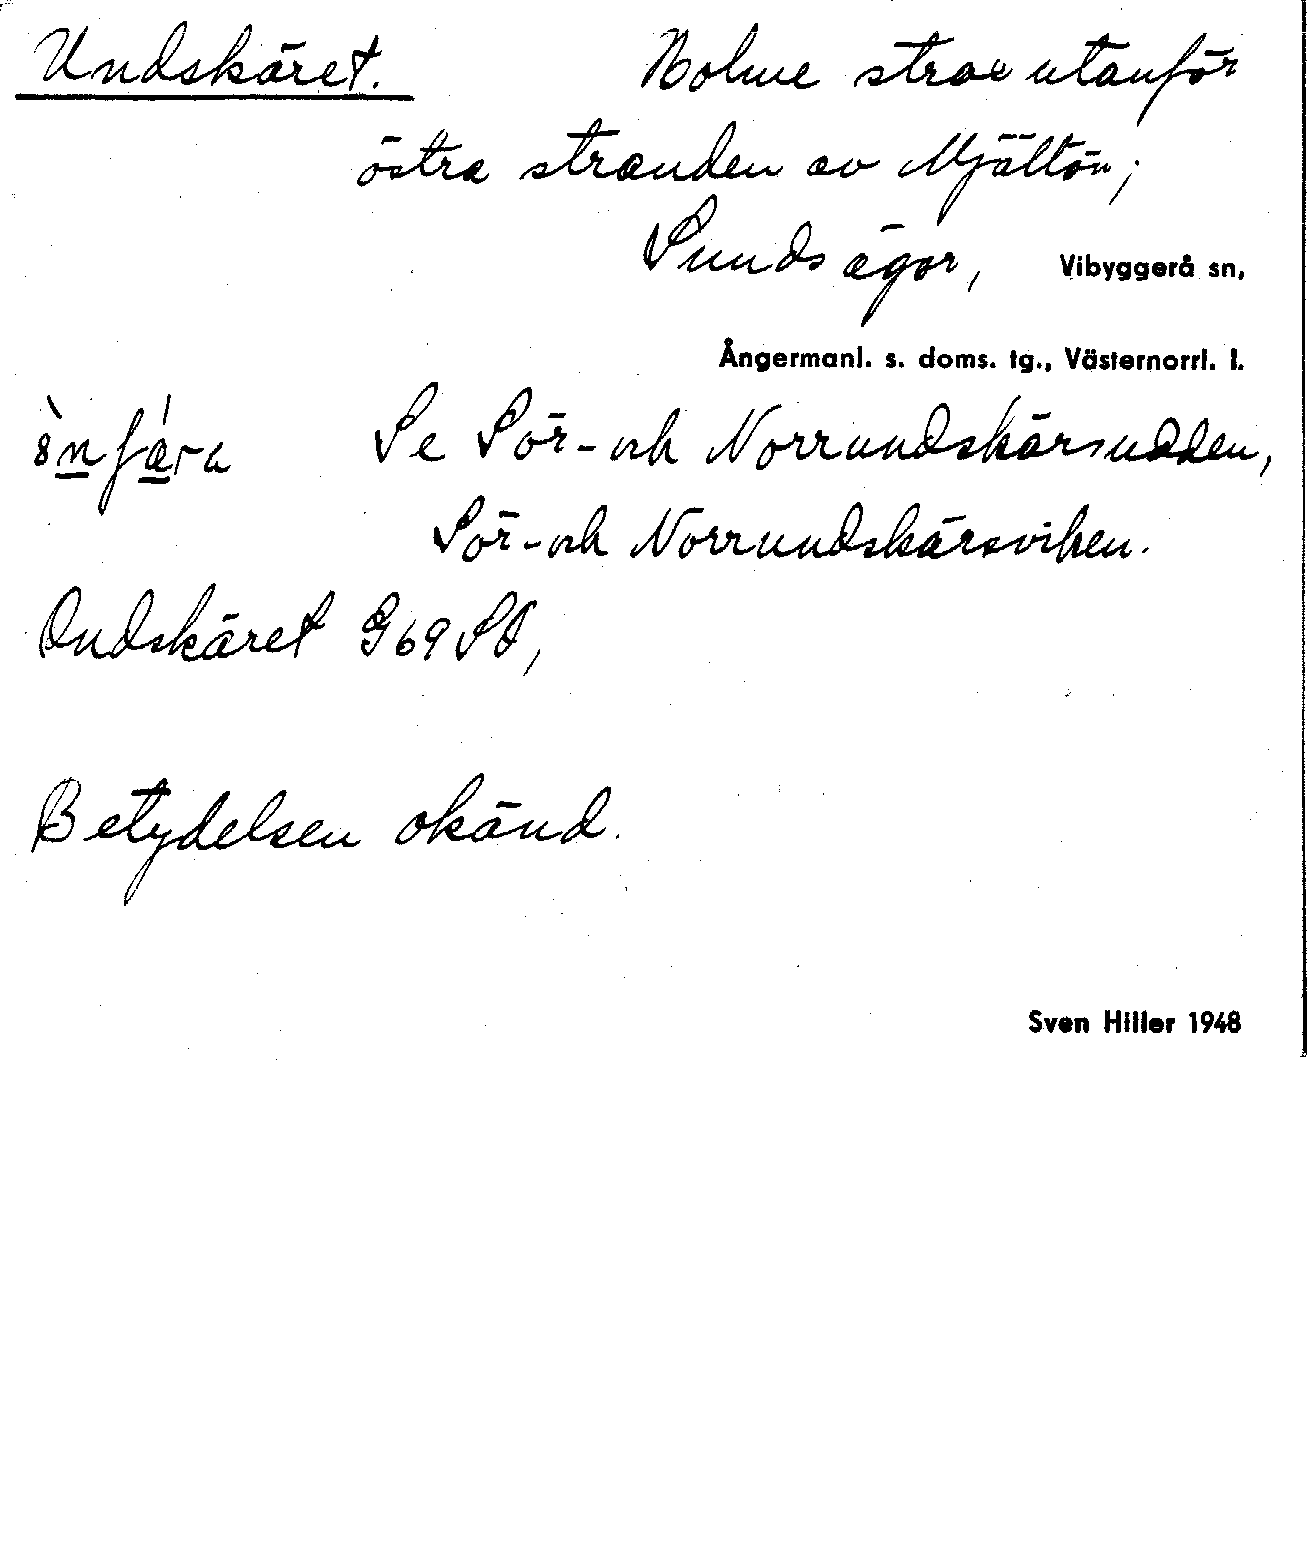 Undskäret. Holme strax utanför
östra stranden av Mjältön;
Sunds ägor, Vibyggerå sn,
Ångermanl. s. doms. tg., Västernorrl. l.
Se Sör- och Norrundskärsudden,
Sör- och Norrundskärsviken.
Undskäret G69SO,
Betydelsen okänd.
Sven Hiller 1948